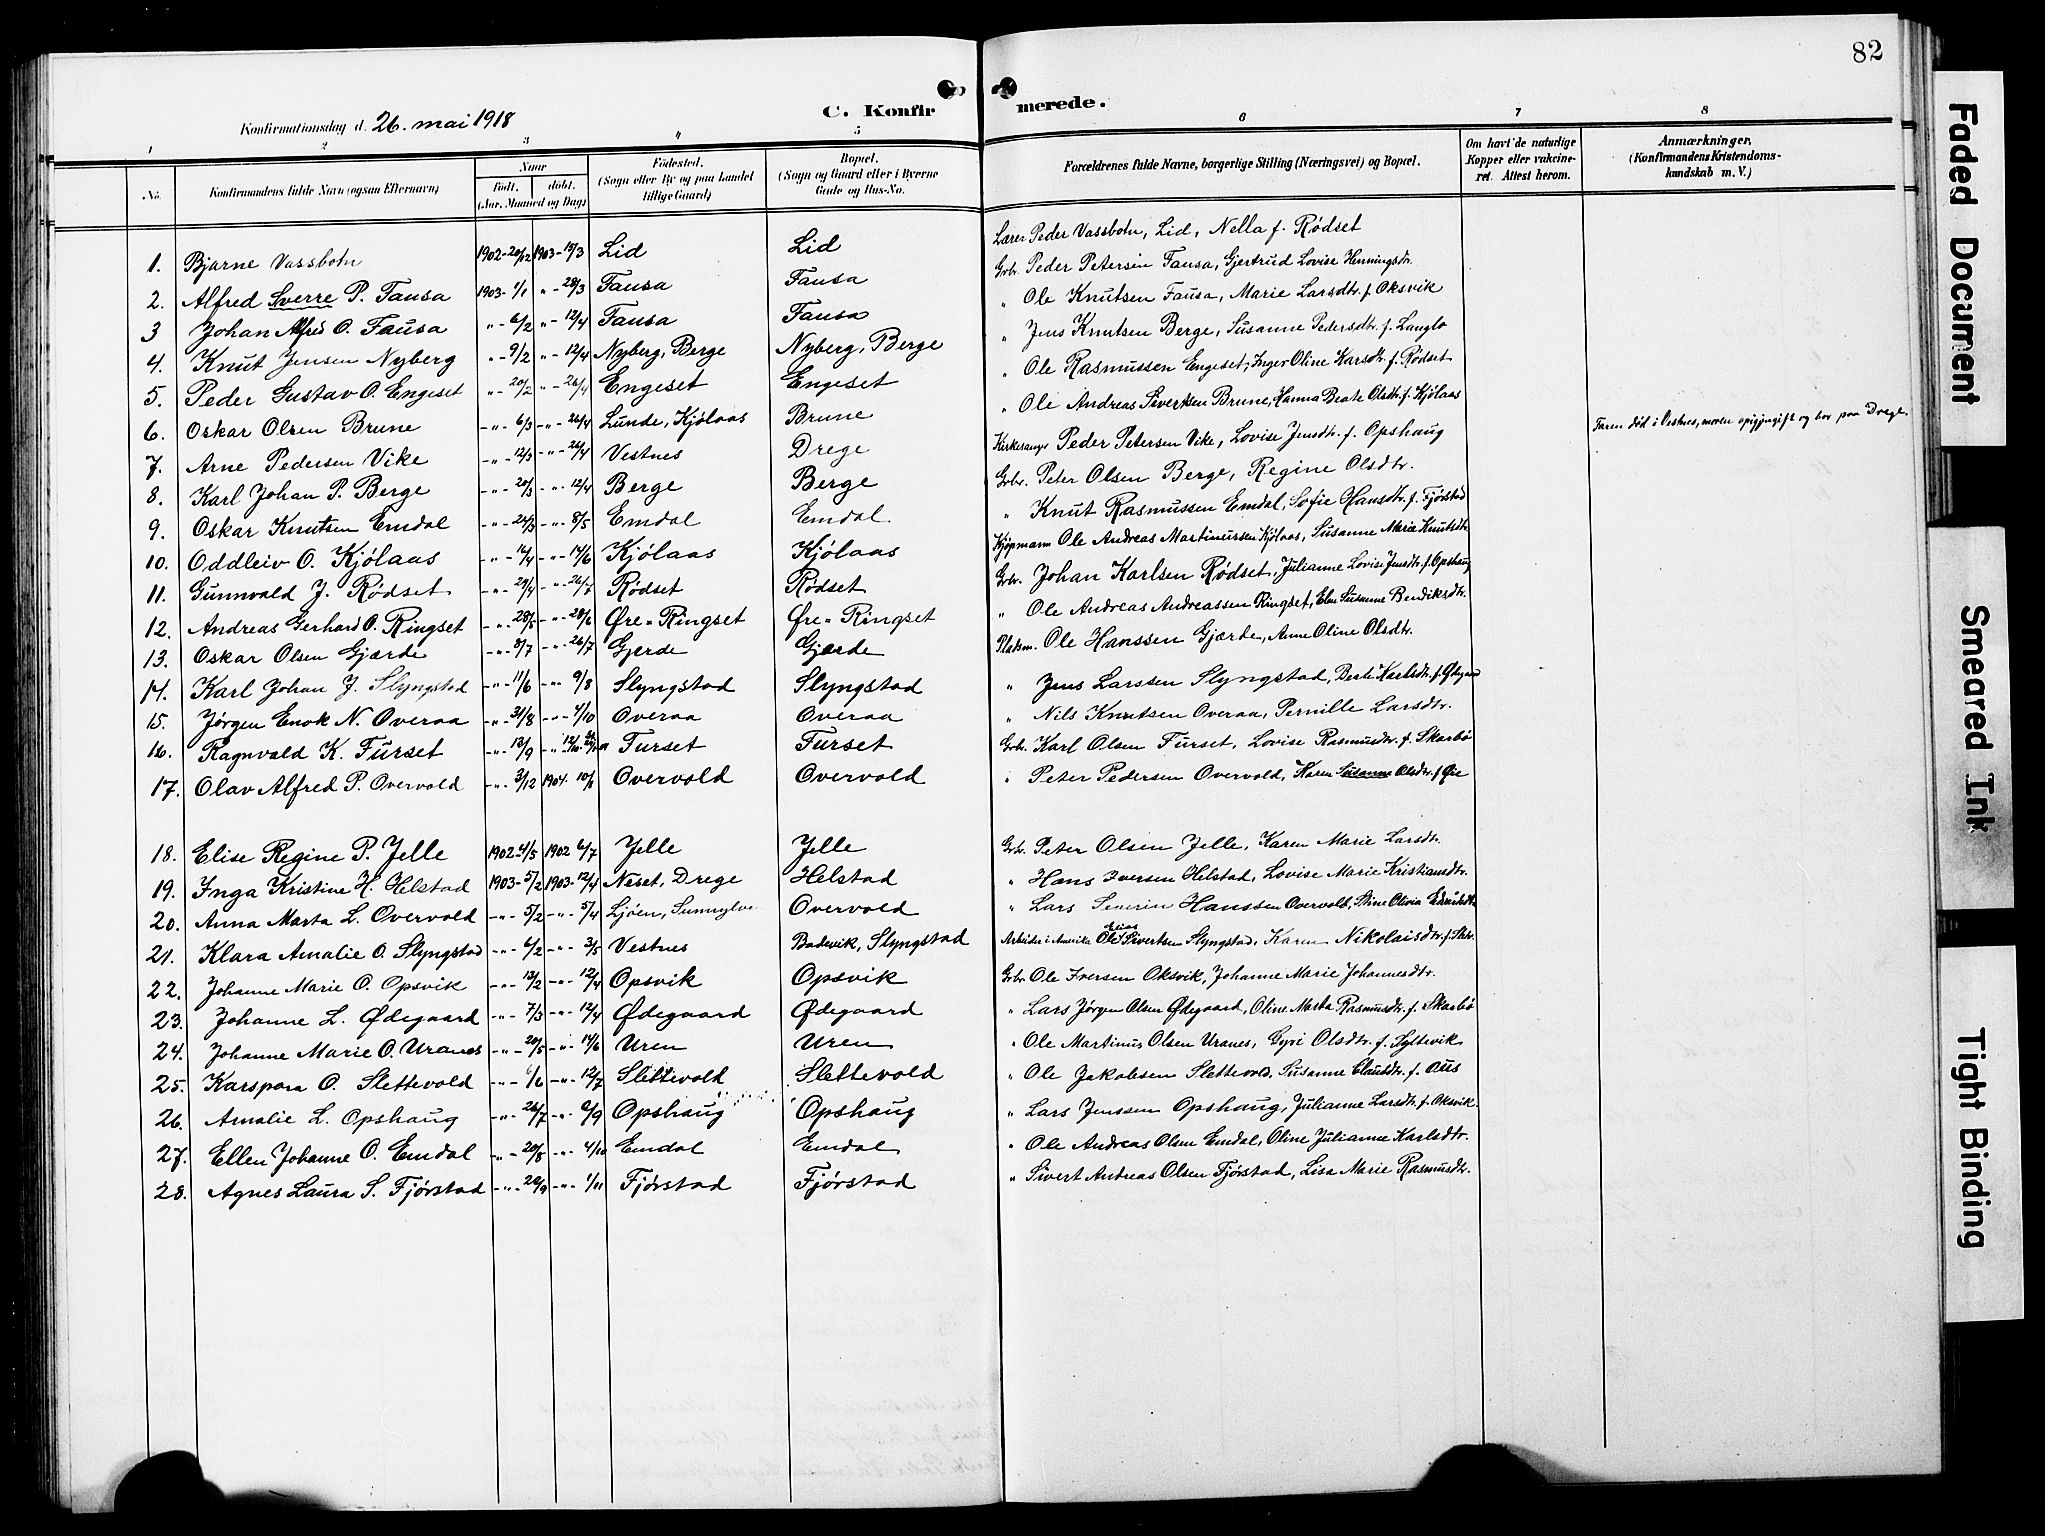 82
C. Konfirmerede.
Konfirmationsdag d. 26. mai 1918
1 2 3 4 5 6 7 8
No. Konfirmandens fulde Navn (ogsaa Efternavn) Naar født. døbt. (Aar, Maaned og Dag) Fødested. (Sogn eller By og paa Landet tillige Gaard) Bopæl. (Sogn og Gaard eller i Byerne Gade og Hus-No. Forældrenes fulde Navne, borgerlige Stilling (Næringsvei) og Bopæl. Om havt de naturlige Kopper eller vaccineret. Attest herom. Anmærkninger. (Konfirmandens Kristendomskundskab m. V.)
1. Bjarne Vassbotn 1902-20/12 1903-15/3 Lid Lid Lærer Peder Vassbotn, Lid, Nella f. Rødset
2. Alfred Sverre P. Fausa 1903-1/1 " 29/3 Fausa Fausa Grbr. Peder Petersen Fausa, Gjertrud Lovise Henningsdtr.
3 Johan Alfred O. Fausa "-6/2 "-12/4 Fausa Fausa " Ole Knutsen Fausa, Marie Larsdtr. f. Oksvik
4. Knut Jensen Nyberg "-9/2 "-12/4 Nyberg, Berge Nyberg, Berge " Jens Knutsen Berge, Susanne Pedersdtr. f. Langlo
5. Peder Gustav O. Engeset "-20/2 "-26/4 Engeset Engeset " Ole Rasmussen Engeset, Inger Oline Larsdtr. f. Rødset
6. Oskar Olsen Brune -"-6/3 -"-26/4 Lunde, Kjølaas Brune " Ole Andreas Siverksen Brune, Hanna Beate Olsdtr. f. Kjølaas
7. Arne Pedersen Vike -"-12/3 -"-26/4 Vestnes Drege Kirkesanger Peder Petersen Vike, Lovise Jensdtr. f. Opshaug Faren død i Vestnes, moren opigjengift og bor paa Drege.
8. Karl Johan P. Berge -"-20/3 -"-12/4 Berge Berge Grbr. Peter Olsen Berge, Regine Olsdtr.
9. Oskar Knutsen Emdal -"-24/3 -"-8/5 Emdal Emdal " Knut Rasmussen Emdal, Sofie Hansdtr. f. Fjørstad
10. Oddleiv O. Kjølaas -"-16/4 -"-14/6 Kjølaas Kjølaas Kjøpmann Ole Andreas Martinussen Kjølaas, Susanne Marie Knutsdtr.
11. Gunnvald J. Rødset -"-29/4 -"-26/7 Rødset Rødset Grbr. Johan Karlsen Rødset, Julianne Lovise Jensdtr. f. Opshaug
12. Andreas Gerhard O. Ringset -"-28/5 -"-28/6 Øre-Ringset Øre-Ringset " Ole Andreas Andreassen Ringset, Elen Susanne Bendiksdtr.
13. Oskar Olsen Gjærde -"-8/7 -"-26/7 Gjerde Gjerde Pladsm. Ole Hanssen Gjærde, Anne Oline Olsdtr.
14. Karl Johan J. Slyngstad -"-11/6 -"-9/8 Slyngstad Slyngstad " Jens Larssen Slyngstad, Berte Karlsdtr. f. Ødegaard
15. Jørgen Enok N. Overaa -"-31/8 -"-4/10 Overaa Overaa " Nils Knutsen Overaa, Pernille Larsdtr.
16. Ragnvald K. Furset -"-13/9 -"- Furset Furset Grb. Karl Olsen Furset, Lovise Rasmusdtr. f. Skarbø
17. Olav Alfred P. Overvold -"-3/12 1904. 10/1 Overvold Overvold " Peter Pedersen Overvold, Karen Susanne Olsdtr. f. Øie
18. Elise Regine P. Jelle 1902-4/5 1902 6/7 Jelle Jelle Grbr. Peter Olsen Jelle, Karen Marie Larsdtr.
19. Inga Kristine H. Helstad 1903-5/2 1903-12/4 Neset, Drege Helstad " Hans Iversen Helstad, Lovise Marie Kristiansdtr.
20. Anna Marta L. Overvold -"-5/2 -"-5/4 Ljøen, Sunnylve Overvold " Lars Severin Hanssen Overvold, Stine Olivia Edvardsdtr.
21. Klara Amalie O. Slyngstad -"-6/2 -"-3/5 Vestnes Badevik, Slyngstad Arbeider i Amerika Ole Elias Sivertsen Slyngstad, Karen Nikolaisdtr. f.
22. Johanne Marie O. Opsvik -"-13/2 -"-12/4 Opsvik Opsvik Grbr. Ole Iversen Oksvik, Johanne Marie Johannesdtr.
23. Johanne L. Ødegaard -"-7/3 -"-12/4 Ødegaard Ødegaard " Lars Jørgen Olsen Ødegaard, Oline Marta Rasmusdtr. f. Skarbø
24. Johanne Marie O. Uranes -"-20/5 -"-14/6 Uren Uren " Ole Martinus Olsen Uranes, Gyri Olsdtr. f. Syltevik
25. Karspara O. Slettevold -"-1/6 -"-12/7 Slettevold Slettevold " Ole Jakobsen Slettevold, Susanne Clausdtr. f. Aus
26. Amalie L. Opshaug -"-26/7 -"-6/9 Opshaug Opshaug " Lars Jenssen Opshaug, Julianne Larsdtr. f. Oksvik
27. Ellen Johanne O. Emdal -"-20/8 -"-4/10 Emdal Emdal " Ole Andreas Olsen Emdal, Oline Julianne Karlsdtr.
28. Agnes Laura S. Fjørstad -"-20/9 -"-1/11 Fjørstad Fjørstad " Sivert Andreas Olsen Fjørstad, Lisa Marie Rasmusdtr.
Faded Document
Smeared Ink
Tight Binding